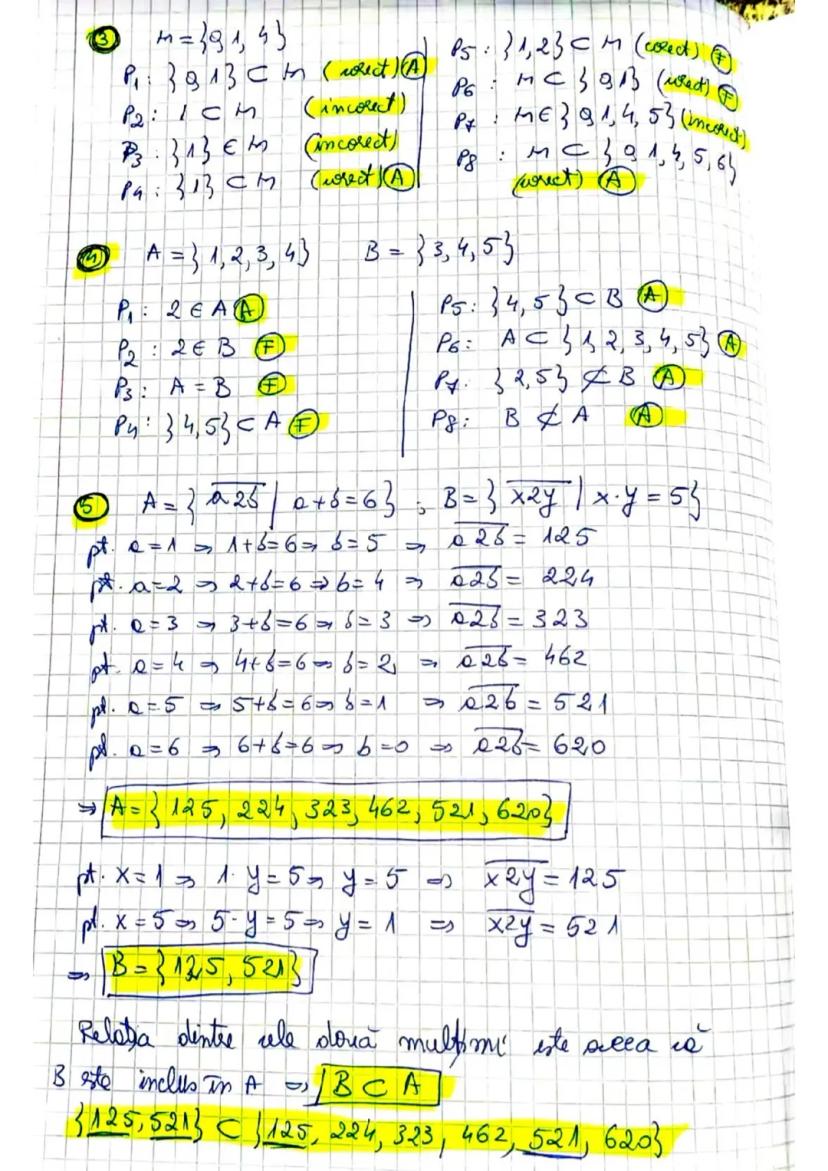 3 M = {0, 1, 4}
P1: {0, 1} ⊂ M (corect) A
P2: 1 ⊂ M (incorect)
P3: {1} ∈ M (incorect)
P4: {1} ⊂ M (corect) A
P5: {1, 2} ⊂ M (corect) F
P6: M ⊂ {0, 1} (corect) F
P7: M ∈ {0, 1, 4, 5} (incorect)
P8: M ⊂ {0, 1, 4, 5, 6}
(corect) A
4 A = {1, 2, 3, 4} B = {3, 4, 5}
P1: 2 ∈ A A
P2: 2 ∈ B F
P3: A = B F
P4: {4, 5} ⊂ A F
P5: {4, 5} ⊂ B A
P6: A ⊂ {1, 2, 3, 4, 5} A
P7. {2, 5} ⊄ B A
P8: B ⊄ A A
5 A = {a̅2̅b̅ | a+b=6}; B = {x̅2̅y̅ | x·y = 5}
pt. a=1 ⇒ 1+b=6 ⇒ b=5 ⇒ a̅2̅b̅ = 125
pt. a=2 ⇒ 2+b=6 ⇒ b=4 ⇒ a̅2̅b̅ = 224
pt. a=3 ⇒ 3+b=6 ⇒ b=3 ⇒ a̅2̅b̅ = 323
pt. a=4 ⇒ 4+b=6 ⇒ b=2 ⇒ a̅2̅b̅ = 462
pt. a=5 ⇒ 5+b=6 ⇒ b=1 ⇒ a̅2̅b̅ = 521
pt. a=6 ⇒ 6+b=6 ⇒ b=0 ⇒ a̅2̅b̅ = 620
⇒ A = {125, 224, 323, 462, 521, 620}
pt. x=1 ⇒ 1·y=5 ⇒ y=5 ⇒ x̅2̅y̅ = 125
pt. x=5 ⇒ 5·y=5 ⇒ y=1 ⇒ x̅2̅y̅ = 521
⇒ B = {125, 521}
Relația dintre cele două mulțimi este aceea că
B este inclus în A ⇒ B ⊂ A
{125, 521} ⊂ {125, 224, 323, 462, 521, 620}